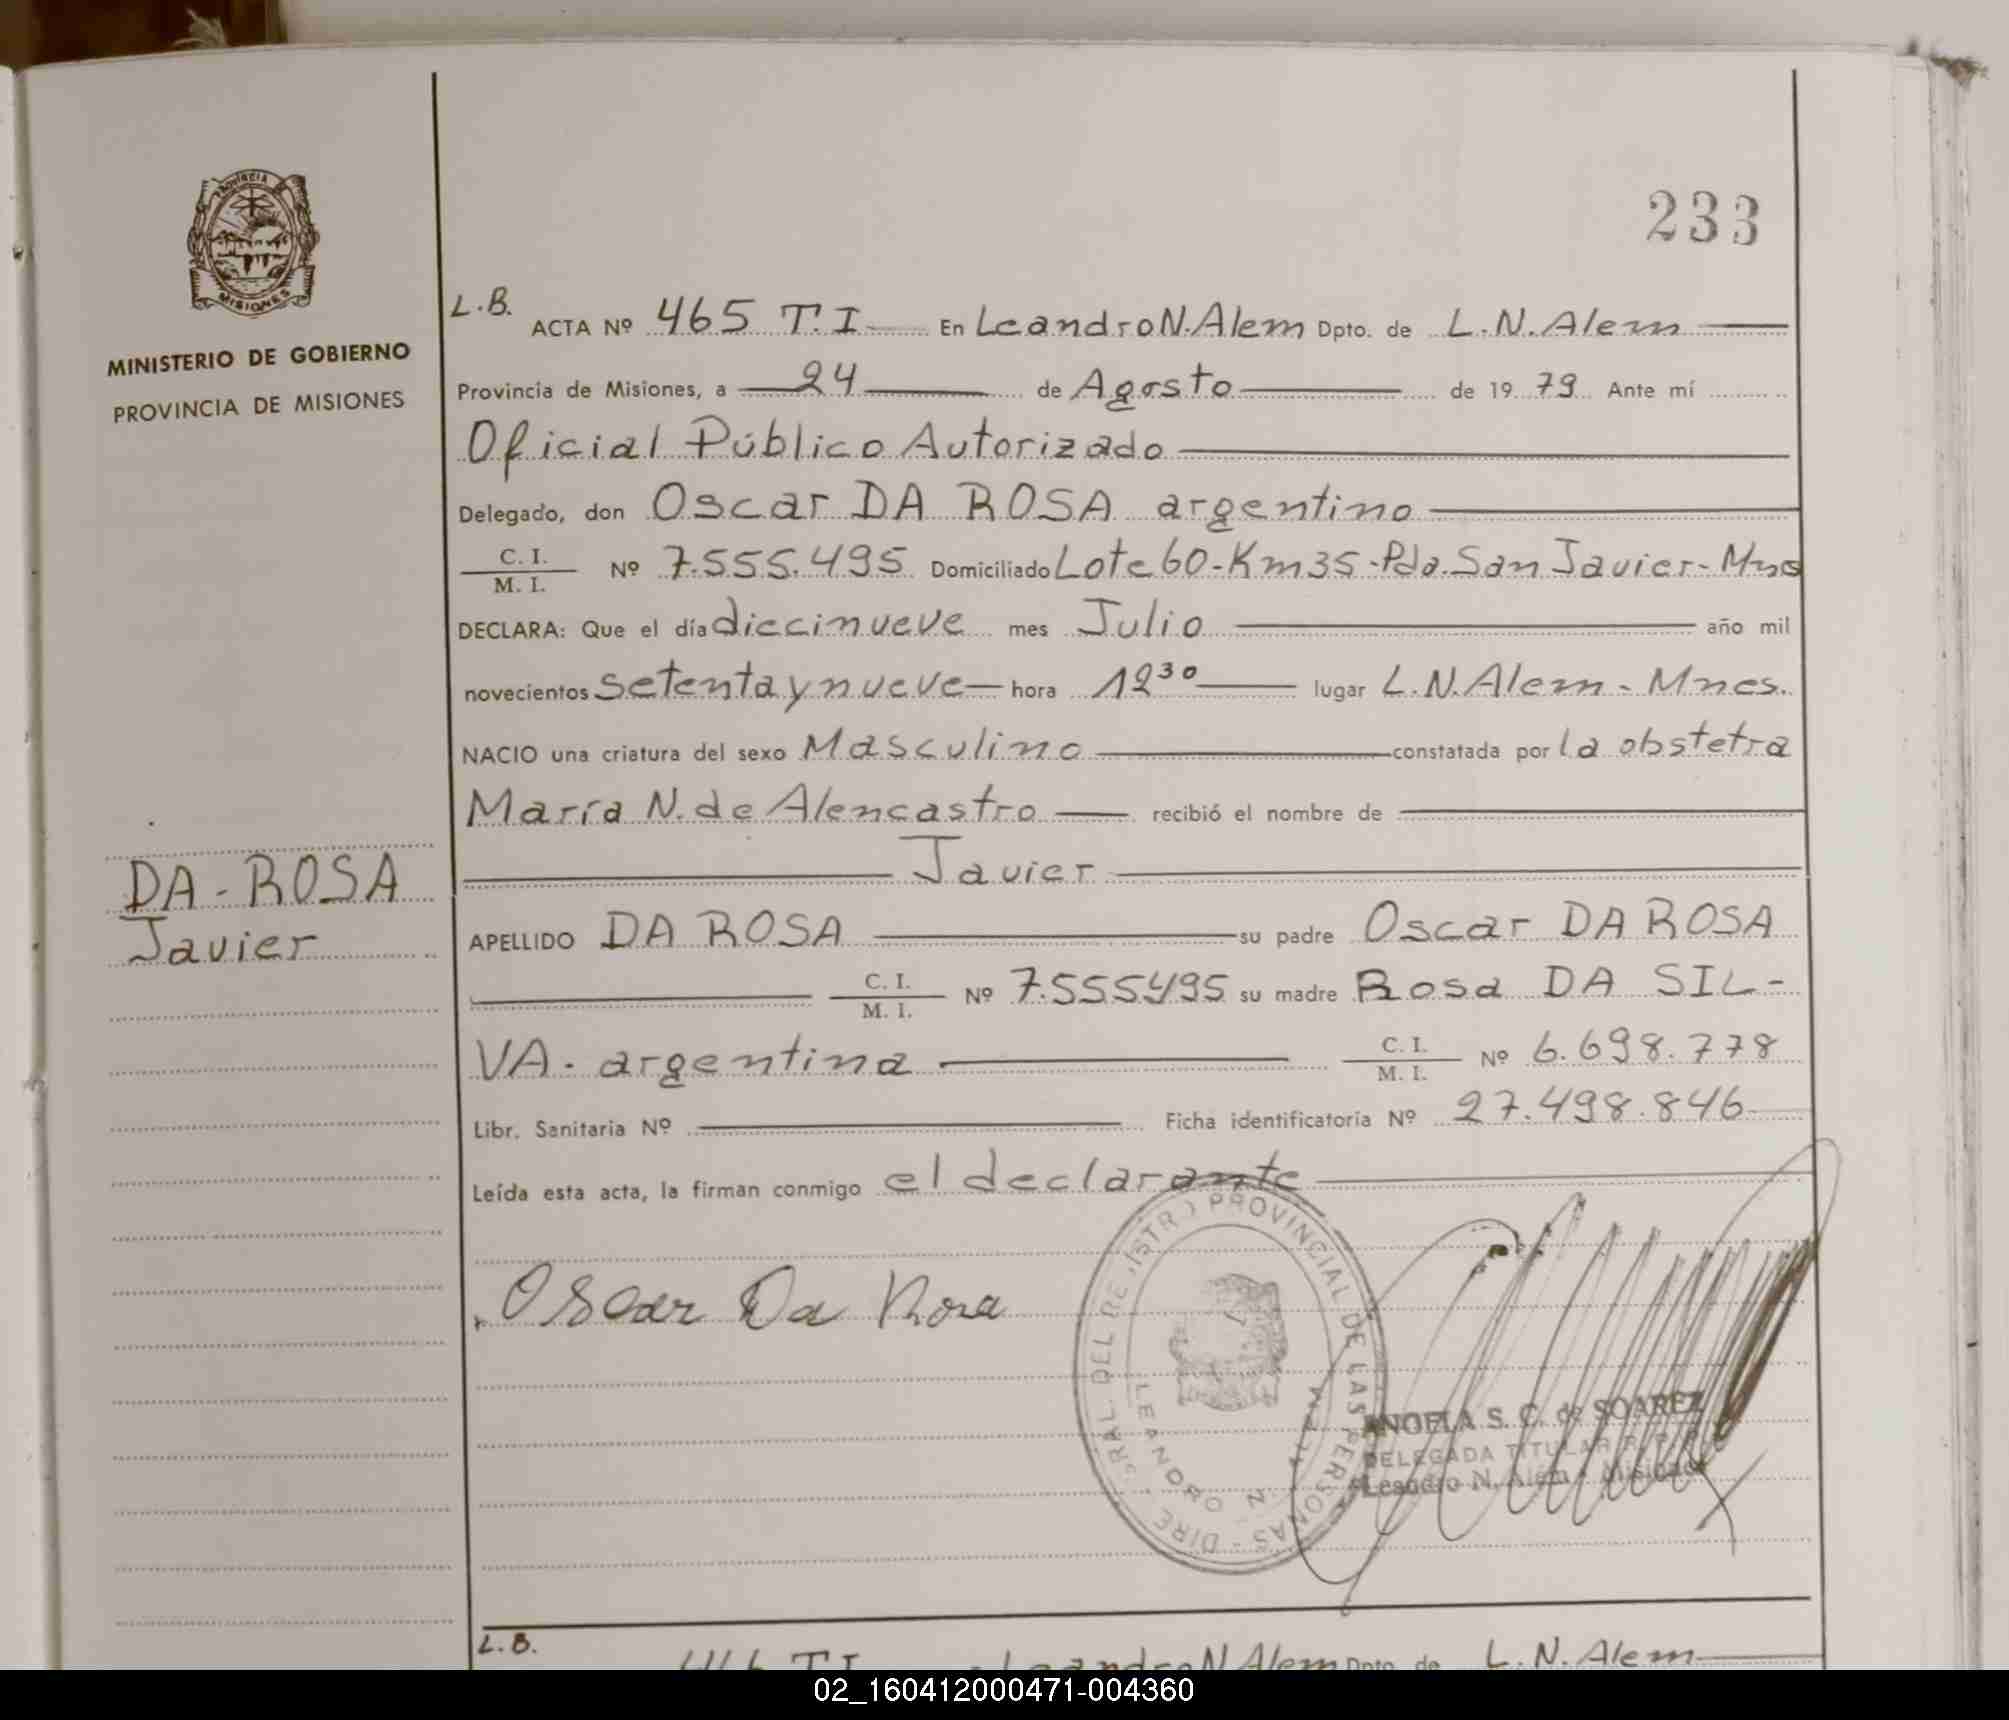 PROVINCIA DE
MISIONES
MINISTERIO DE GOBIERNO
PROVINCIA DE MISIONES
DA-ROSA
Javier
233
L.B. ACTA Nº 465 T.I En Leandro N. Alem Dpto. de L.N. Alem
Provincia de Misiones, a 24 de Agosto de 19 79 Ante mí
Oficial Público Autorizado
Delegado, don Oscar DA ROSA argentino
C. I.
M. I. Nº 7.555.495 Domiciliado Lote 60-Km35-Pda. San Javier-Mns
DECLARA: Que el día diecinueve mes Julio año mil
novecientos setenta y nueve hora 12 30 lugar L.N. Alem - Mnes.
NACIO una criatura del sexo Masculino constatada por la obstetra
María N. de Alencastro recibió el nombre de
Javier
APELLIDO DA ROSA su padre Oscar DA ROSA
C. I.
M. I. Nº 7.555495 su madre Rosa DA SIL-
VA. argentina C. I.
M. I. Nº 6.698.778
Libr. Sanitaria Nº Ficha identificatoria Nº 27.498.846
Leída esta acta, la firman conmigo el declarante
Oscar Da Rosa
PROVINCIAL DE LAS PERSONAS
LEANDRO N. ALEM
ANGELA S. C. de SOAREZ
DELEGADA TITULAR R. P. P.
Leandro N. Alem - Misiones
L.B.
466 T.I Leandro N Alem Dpto. de L.N. Alem
02_160412000471-004360